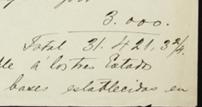 3.000.
Total 31.421.3 2/4.
á los tres Estado
bases establecidas en